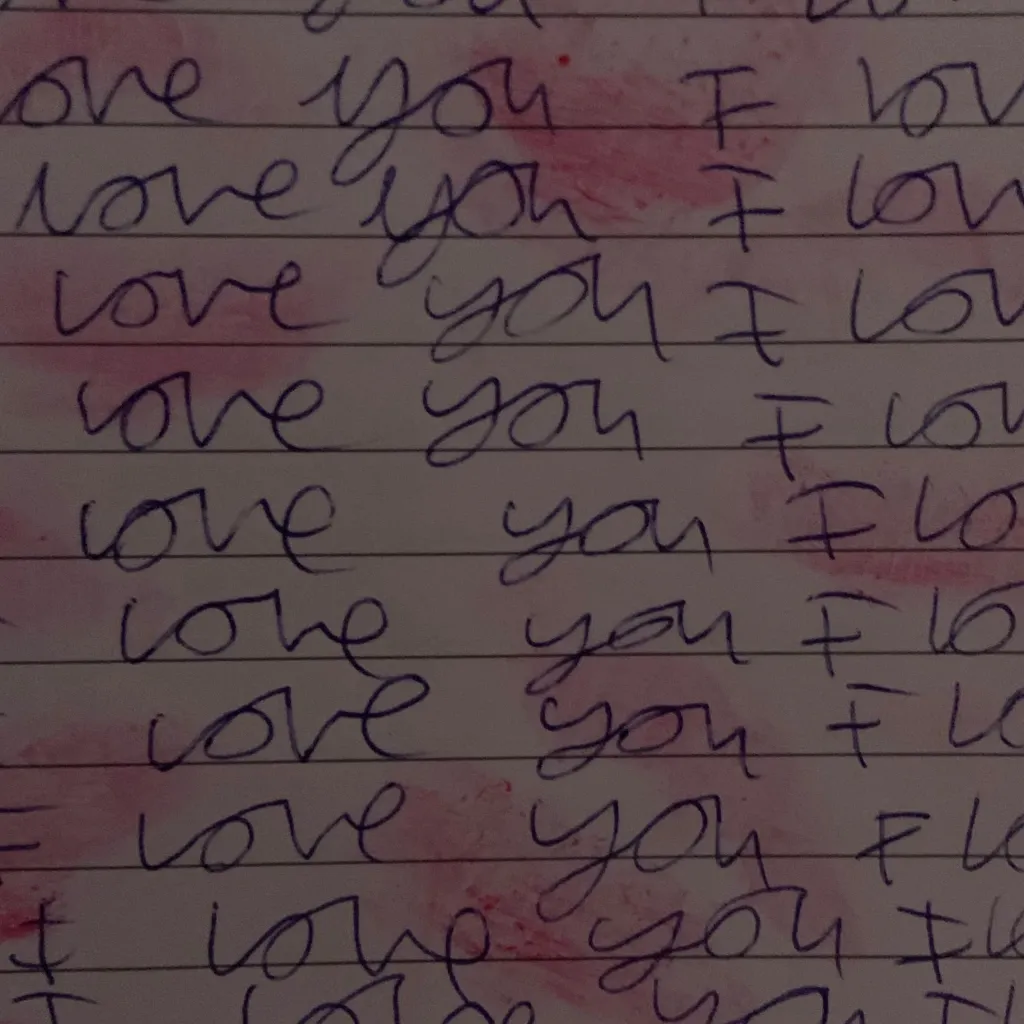 you I lo
ove you I lov
love you I lov
love you I lov
love you I lov
love you I lo
love you I lo
love you I lo
I love you I lo
I love you I lo
I love you I l